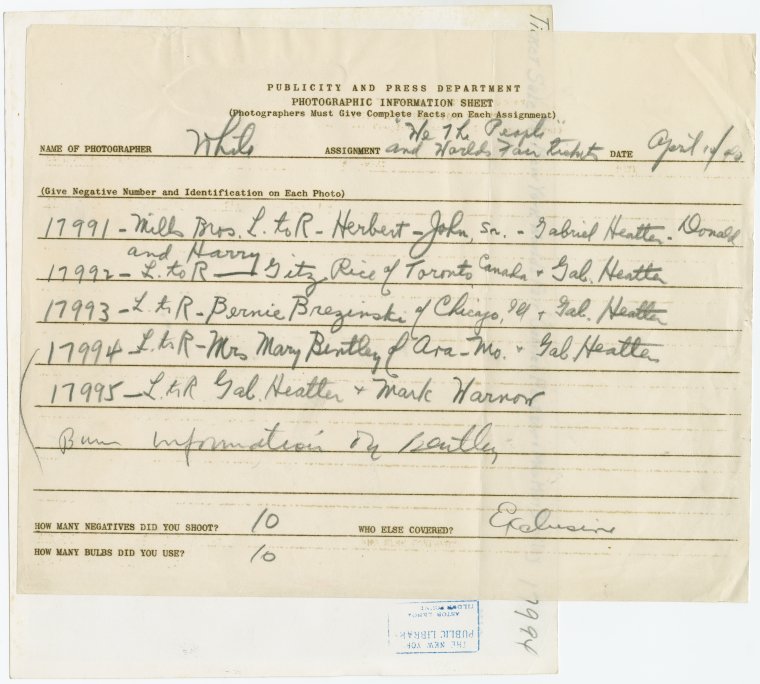 PUBLICITY AND PRESS DEPARTMENT
PHOTOGRAPHIC INFORMATION SHEET
(Photographers Must Give Complete Facts on Each Assignment)
NAME OF PHOTOGRAPHER While ASSIGNMENT "We The People" and Worlds Fair tickets DATE April
(Give Negative Number and Identification on Each Photo)
17991 - Mills Bros. L. to R - Herbert - John, Sr. - Gabriel Heatter - Donald
and Harry
17992 - L. to R - Gitz Rice of Toronto Canada + Gab. Heatter
17993 - L to R - Bernie Brezinski of Chicago, Ill + Gab. Heatter
17994 - L. to R - Mrs Mary Bentley of Ava - Mo. + Gab Heatter
17995 - L. to R Gab. Heatter + Mark Warnow
Information on Bentley
HOW MANY NEGATIVES DID YOU SHOOT? 10 WHO ELSE COVERED? Exclusive
HOW MANY BULBS DID YOU USE? 10
17994
THE NEW YOR
PUBLIC LIBRAR
ASTOR LENOX
TILDEN FOUND